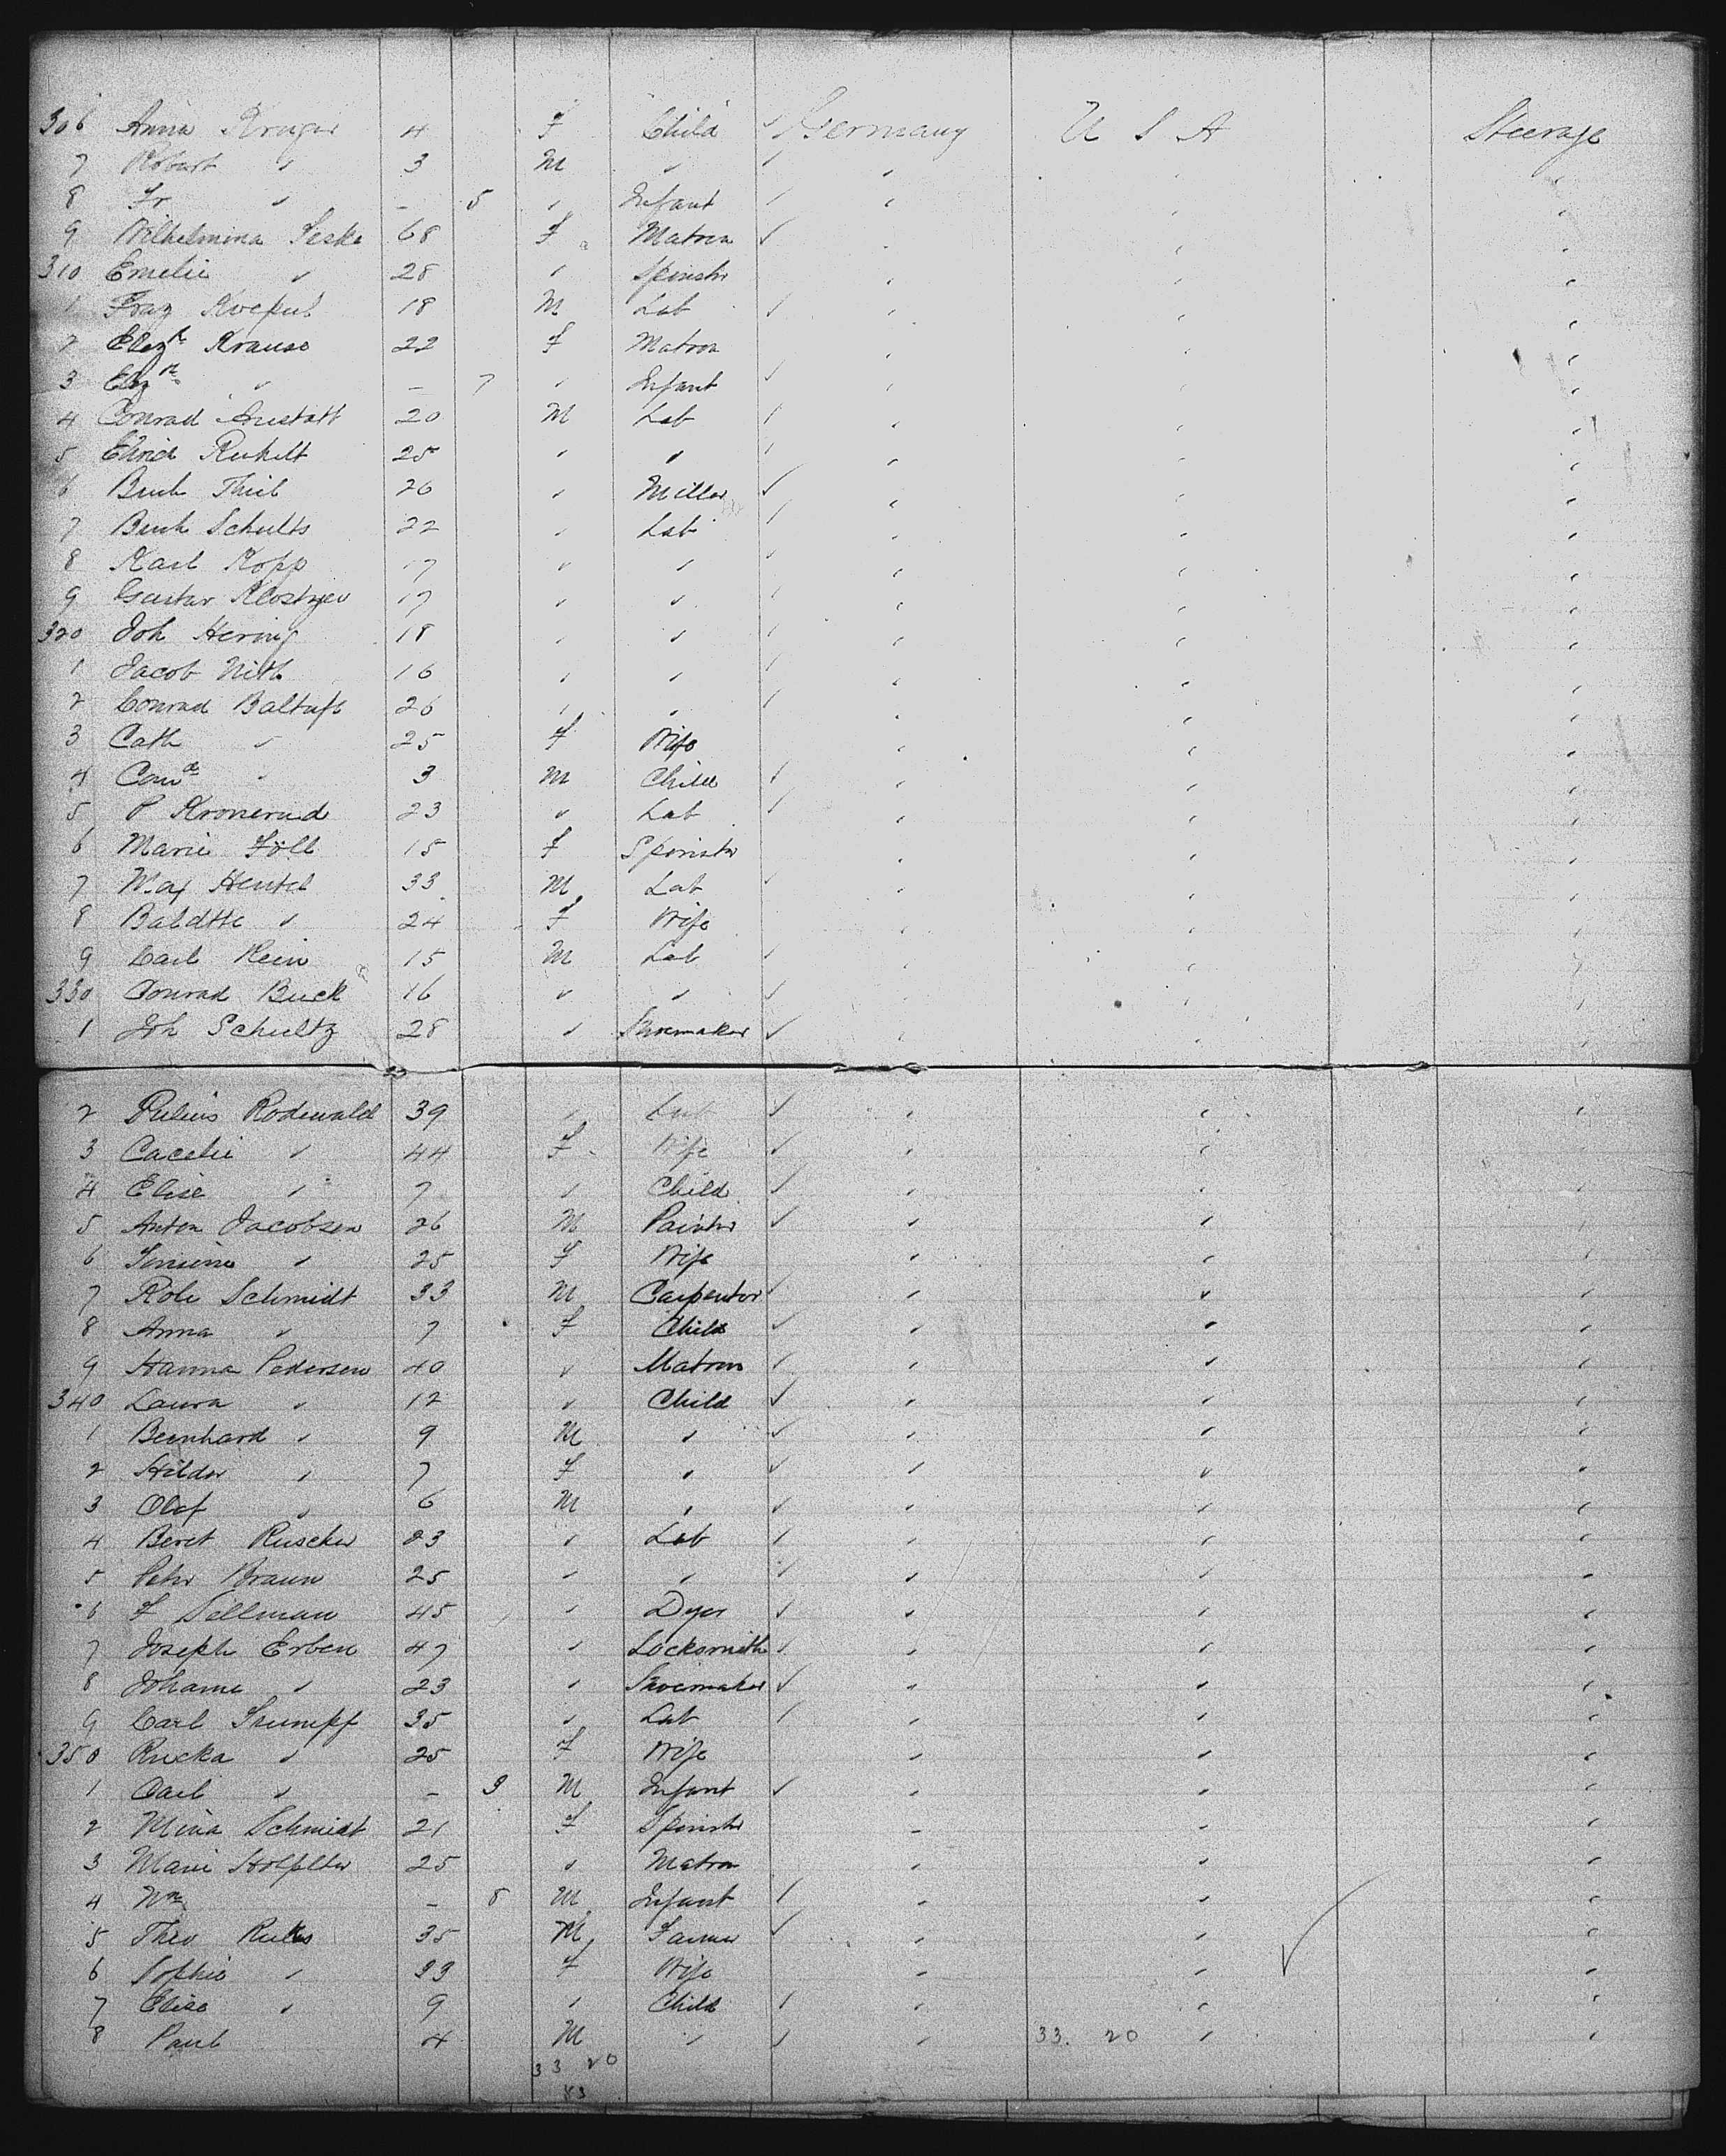 306 Anna Kruger 4 F Child Germany U S A Steerage
7 Robert " 3 M "
8 Fr " - 5 " Infant
9 Wilhelmina Seske 68 F Matron
310 Emelie " 28 " Spinstr
1 Franz 18 M Lab
2 Elizth Krause 22 F Matron
3 Elizth " - 7 " Infant
4 Conrad Anstatt 20 M Lab
5 25 " "
6 Thiel 26 " Miller
7 Schults 22 " Lab
8 Karl Kopp 17 " "
9 Gustav 17 " "
320 Joh Hering 18 " "
1 Jacob Nith 16 " "
2 Conrad 26 " "
3 Cath " 25 F Wife
4 Conrd " 3 M Child
5 P 23 " Lab
6 Marie Föll 15 F Spinstr
7 Max Hentel 33 M Lab
8 " 24 F Wife
9 Carl Klein 15 M Lab
330 Conrad Buck 16 " "
1 Joh Schultz 28 " Shoemaker
2 Julius Rodewald 39 " Lab
3 Cacelie " 44 F Wife
4 Elise " 7 " Child
5 Anton Jacobsen 26 M Painter
6 " 25 F Wife
7 Robe Schmidt 33 M Carpenter
8 Anna " 7 F Child
9 Hanna Pedersen 40 " Matron
340 Laura " 12 " Child
1 Bernhard " 9 M "
2 Hilder " 7 F "
3 Olaf " 6 M "
4 Beret Ruscher 23 " Lab
5 Petr Braun 25 " "
6 F Sellman 45 " Dyer
7 Joseph Erben 47 " Locksmith
8 Johann " 23 " Shoemaker
9 Carl Stumpf 35 " Lab
350 Rucka " 25 F Wife
1 Carl " - 9 M Infant
2 Mina Schmidt 21 F Spinstr
3 Marie 25 " Matron
4 Wm - 8 M Infant
5 Theo 35 M Farmer
6 Sophie " 33 F Wife
7 Elise " 9 " Child
8 Paul 4 M " 33. 20
33 20
53